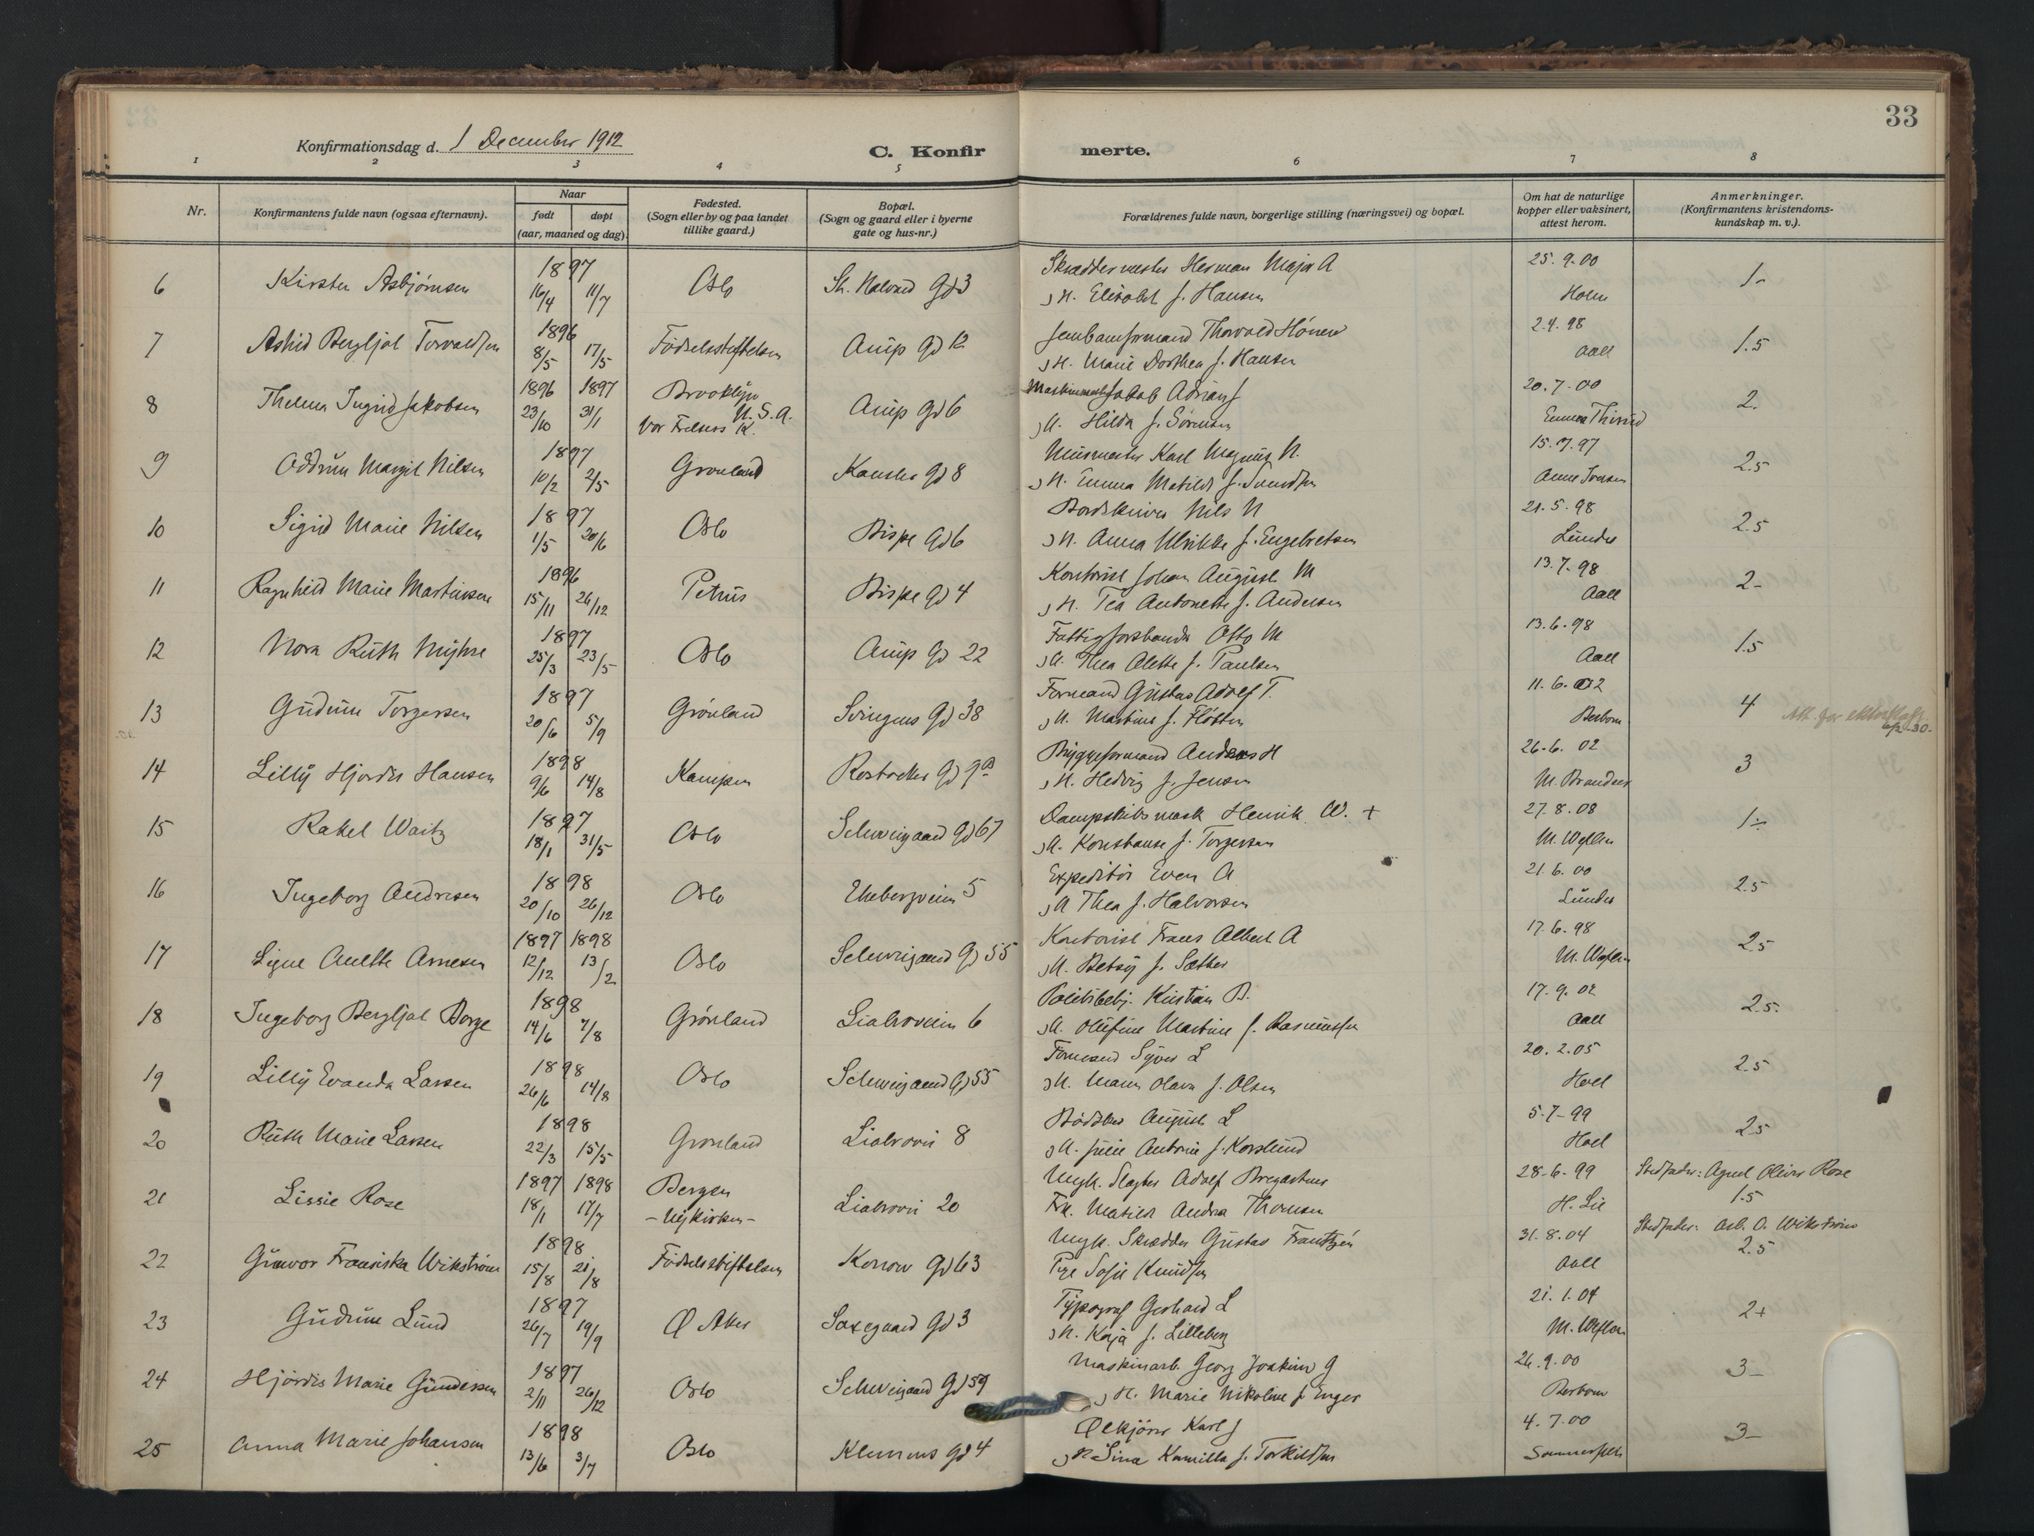 33
Konfirmationsdag d. 1 December 1912
C. Konfirmerte.
1 2 3 4 5 6 7 8
Nr. Konfirmantens fulde navn (ogsaa efternavn). Naar født døpt (aar, maaned og dag). Fødested. (Sogn eller by og paa landet tillike gaard.) Bopæl. (Sogn og gaard eller i byerne gate og hus-nr.) Forældrenes fulde navn, borgerlige stilling (næringsvei) og bopæl. Om hat de naturlige kopper eller vaksinert, attest herom. Anmerkninger. (Konfirmantens kristendomskundskap m. v.).
1897 Skræddermester Herman Major A 25.9.00
6 Kirsten Asbjørnsen 16/4 11/7 Oslo St. Halvard Gd 3 H. Elisabet f. Hansen Holm 1-
1896 Thorvald 2.4.98
7 Astrid Bergljot Torvaldsen 8/5 17/5 Fødselsstiftelsen Arup Gd 12 H. Marie Dorthea f. Hansen Aall 1.5
1896 1897 Brooklyn U.S.A. Jakob Adrian J 20.7.00
8 Thelma Ingrid Jakobsen 23/10 31/1 Vor Frelsers K. Arup Gd 6 H. Hilda f. Sørensen Emma 2.
1897 Murmester Karl Magnus N. 15.7.97
9 Oddrun Margit Nilsen 10/2 2/5 Grønland Kansler Gd 8 H. Emma Matilde f. Svendsen Anne Iversen 2.5
1897 Bordskriver Nils N 21.5.98
10 Sigrid Marie Nilsen 1/5 20/6 Oslo Bispe Gd 6 H. Anna Ulrikke f. Engebretsen Lunder 2.5
1896 Kontorist Johan August M 13.7.98
11 Ragnhild Marie Martinsen 15/11 26/12 Petrus Bispe Gd 4 H. Tea Antonette f. Andersen Aall 2-
1897 Otto M 13.6.98
12 Nora Ruth Myhre 25/3 23/5 Oslo Arup Gd 22 H. Thea Olette f. Paulsen Aall 1.5
1897 Formand Gustav Adolf T. 11.6.02
13 Gudrun Torgersen 20/6 5/9 Grønland Svingens Gd 38 H. Martine f. Fløtten Berbom 4 Att. for
1898 Byggeformand Anders H 26.6.02
14 Lilly Hjørdis Hansen 9/6 14/8 Kampen Rostocker Gd 9 H. Hedvig f. Jensen M. Brandser 3
1897 Dampskibsmask Henrik W. + 27.8.08
15 Rakel Waitz 18/1 31/5 Oslo Schweigaard Gd 67 H. Konstanse f. Torgersen M. Weflen 1-
1898 Expeditør Even A 21.6.00
16 Ingeborg Andresen 20/10 26/12 Oslo Ekebergveien 5 H Thea f. Halvorsen Lunder 2.5
1897 1898 Kontorist Frans Albert A 17.6.98
17 Signe Anette Arnesen 12/12 13/2 Oslo Schweigaard Gd 55 H. Betsy f. Sæther M. Weflen 2.5
1898 Politibetj. Kristian B. 17.9.02
18 Ingeborg Bergljot Borge 14/6 7/8 Grønland Liabroveien 6 H. Olufine Martine f. Rasmussen Aall 2.5
1898 Formand Syver L 20.2.05
19 Lilly Evanda Larsen 26/6 14/8 Oslo Schweigaard Gd 55 H. Maren Olava f. Olsen Hoel 2.5
1898 Bødker August L 5.7.99
20 Ruth Marie Larsen 22/3 15/5 Grønland Liabrovei 8 H. Julie Antonie f. Korslund Hoel 2.5
1897 1898 Bergen Ungk. Slagter Adolf Bregartner 28.6.99 Stedfader: Agent Oliver Rose
21 Lissie Rose 18/1 17/7 - Nykirken - Liabrovei 20 Frk. Matilde Andrea Thomsen H. Lie 1.5
1898 Ungk. Skrædder Gustav Frantzén 31.8.04 Stedfader: Arb. O. Wikstrøm
22 Gunvor Fransiska Wikstrøm 15/8 21/8 Fødselsstiftelsen Konow Gd 63 Pige Sofie Knudsen Aall 2.5
1897 Typograf Gerhard L 21.1.04
23 Gudrun Lund 26/7 19/9 Ø Aker Saxegaard Gd 3 H. Kaja f. Lilleberg M. Weflen 2+
1897 Maskinarb. Georg Joakim G 26.9.00
24 Hjørdis Marie Gundersen 2/11 26/12 Oslo Schweigaard Gd 59 H. Marie Nikoline f. Enger Berbom 3-
1898 Ølkjører Karl J 4.7.00
25 Anna Marie Johansen 13/6 3/7 Oslo Klemens Gd 4 H Lina Kamilla f. Torkildsen Sommerfelt 3-